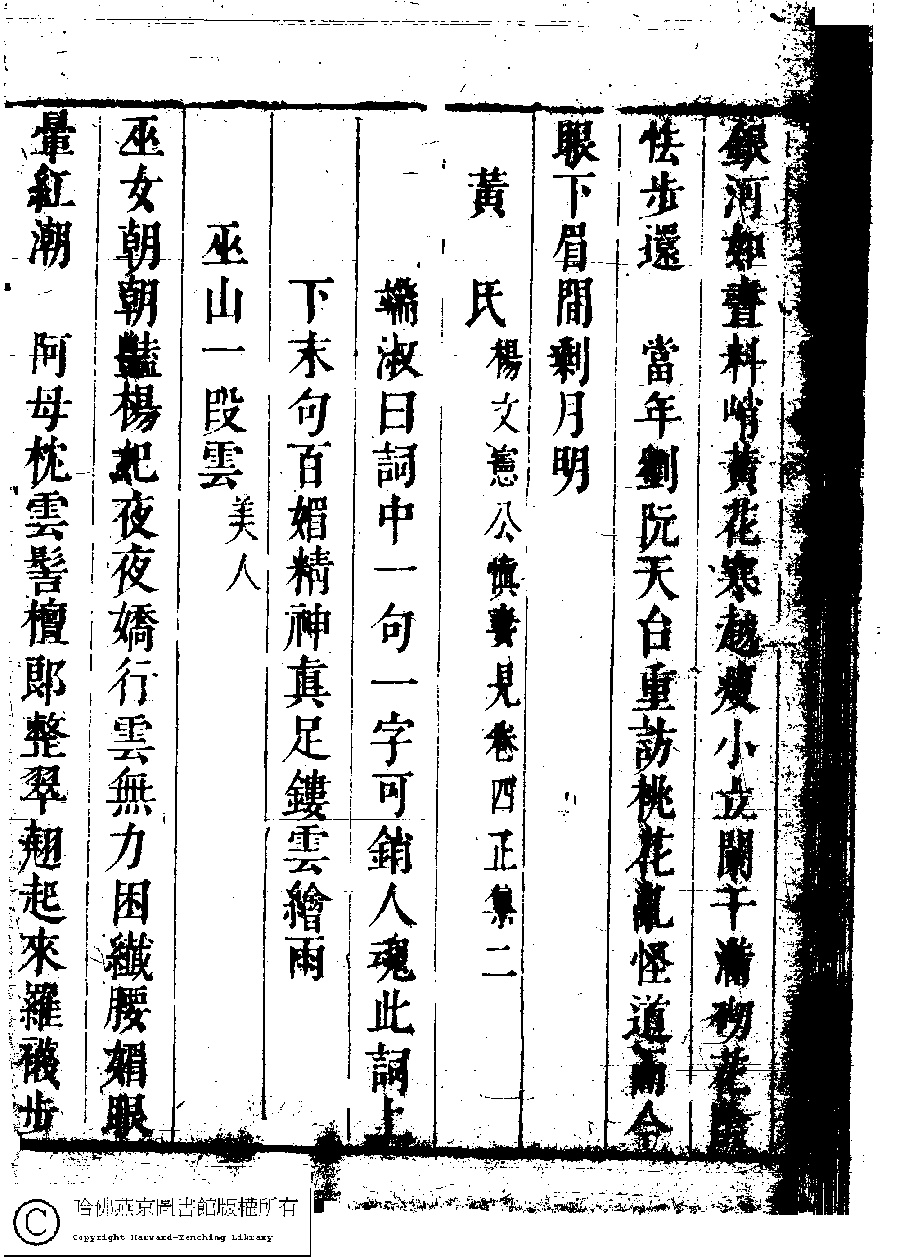 銀河如晝料峭黃花寒越瘦小立闌干滿砌花陰
怯步還　當年劉阮天台重訪桃花亂怪道而今
眼下眉間剩月明
黃　氏　楊文憲公慎妻見卷四正集二
端淑曰詞中一句一字可銷人魂此詞上
下末句百媚精神真足鏤雲繪雨
巫山一段雲　美人
巫女朝朝豔楊妃夜夜嬌行雲無力困纖腰媚眼
暈紅潮　阿母梳雲髻檀郎整翠翹起來羅襪步
哈佛燕京圖書館版權所有
Copyright Harvard-Yenching Library